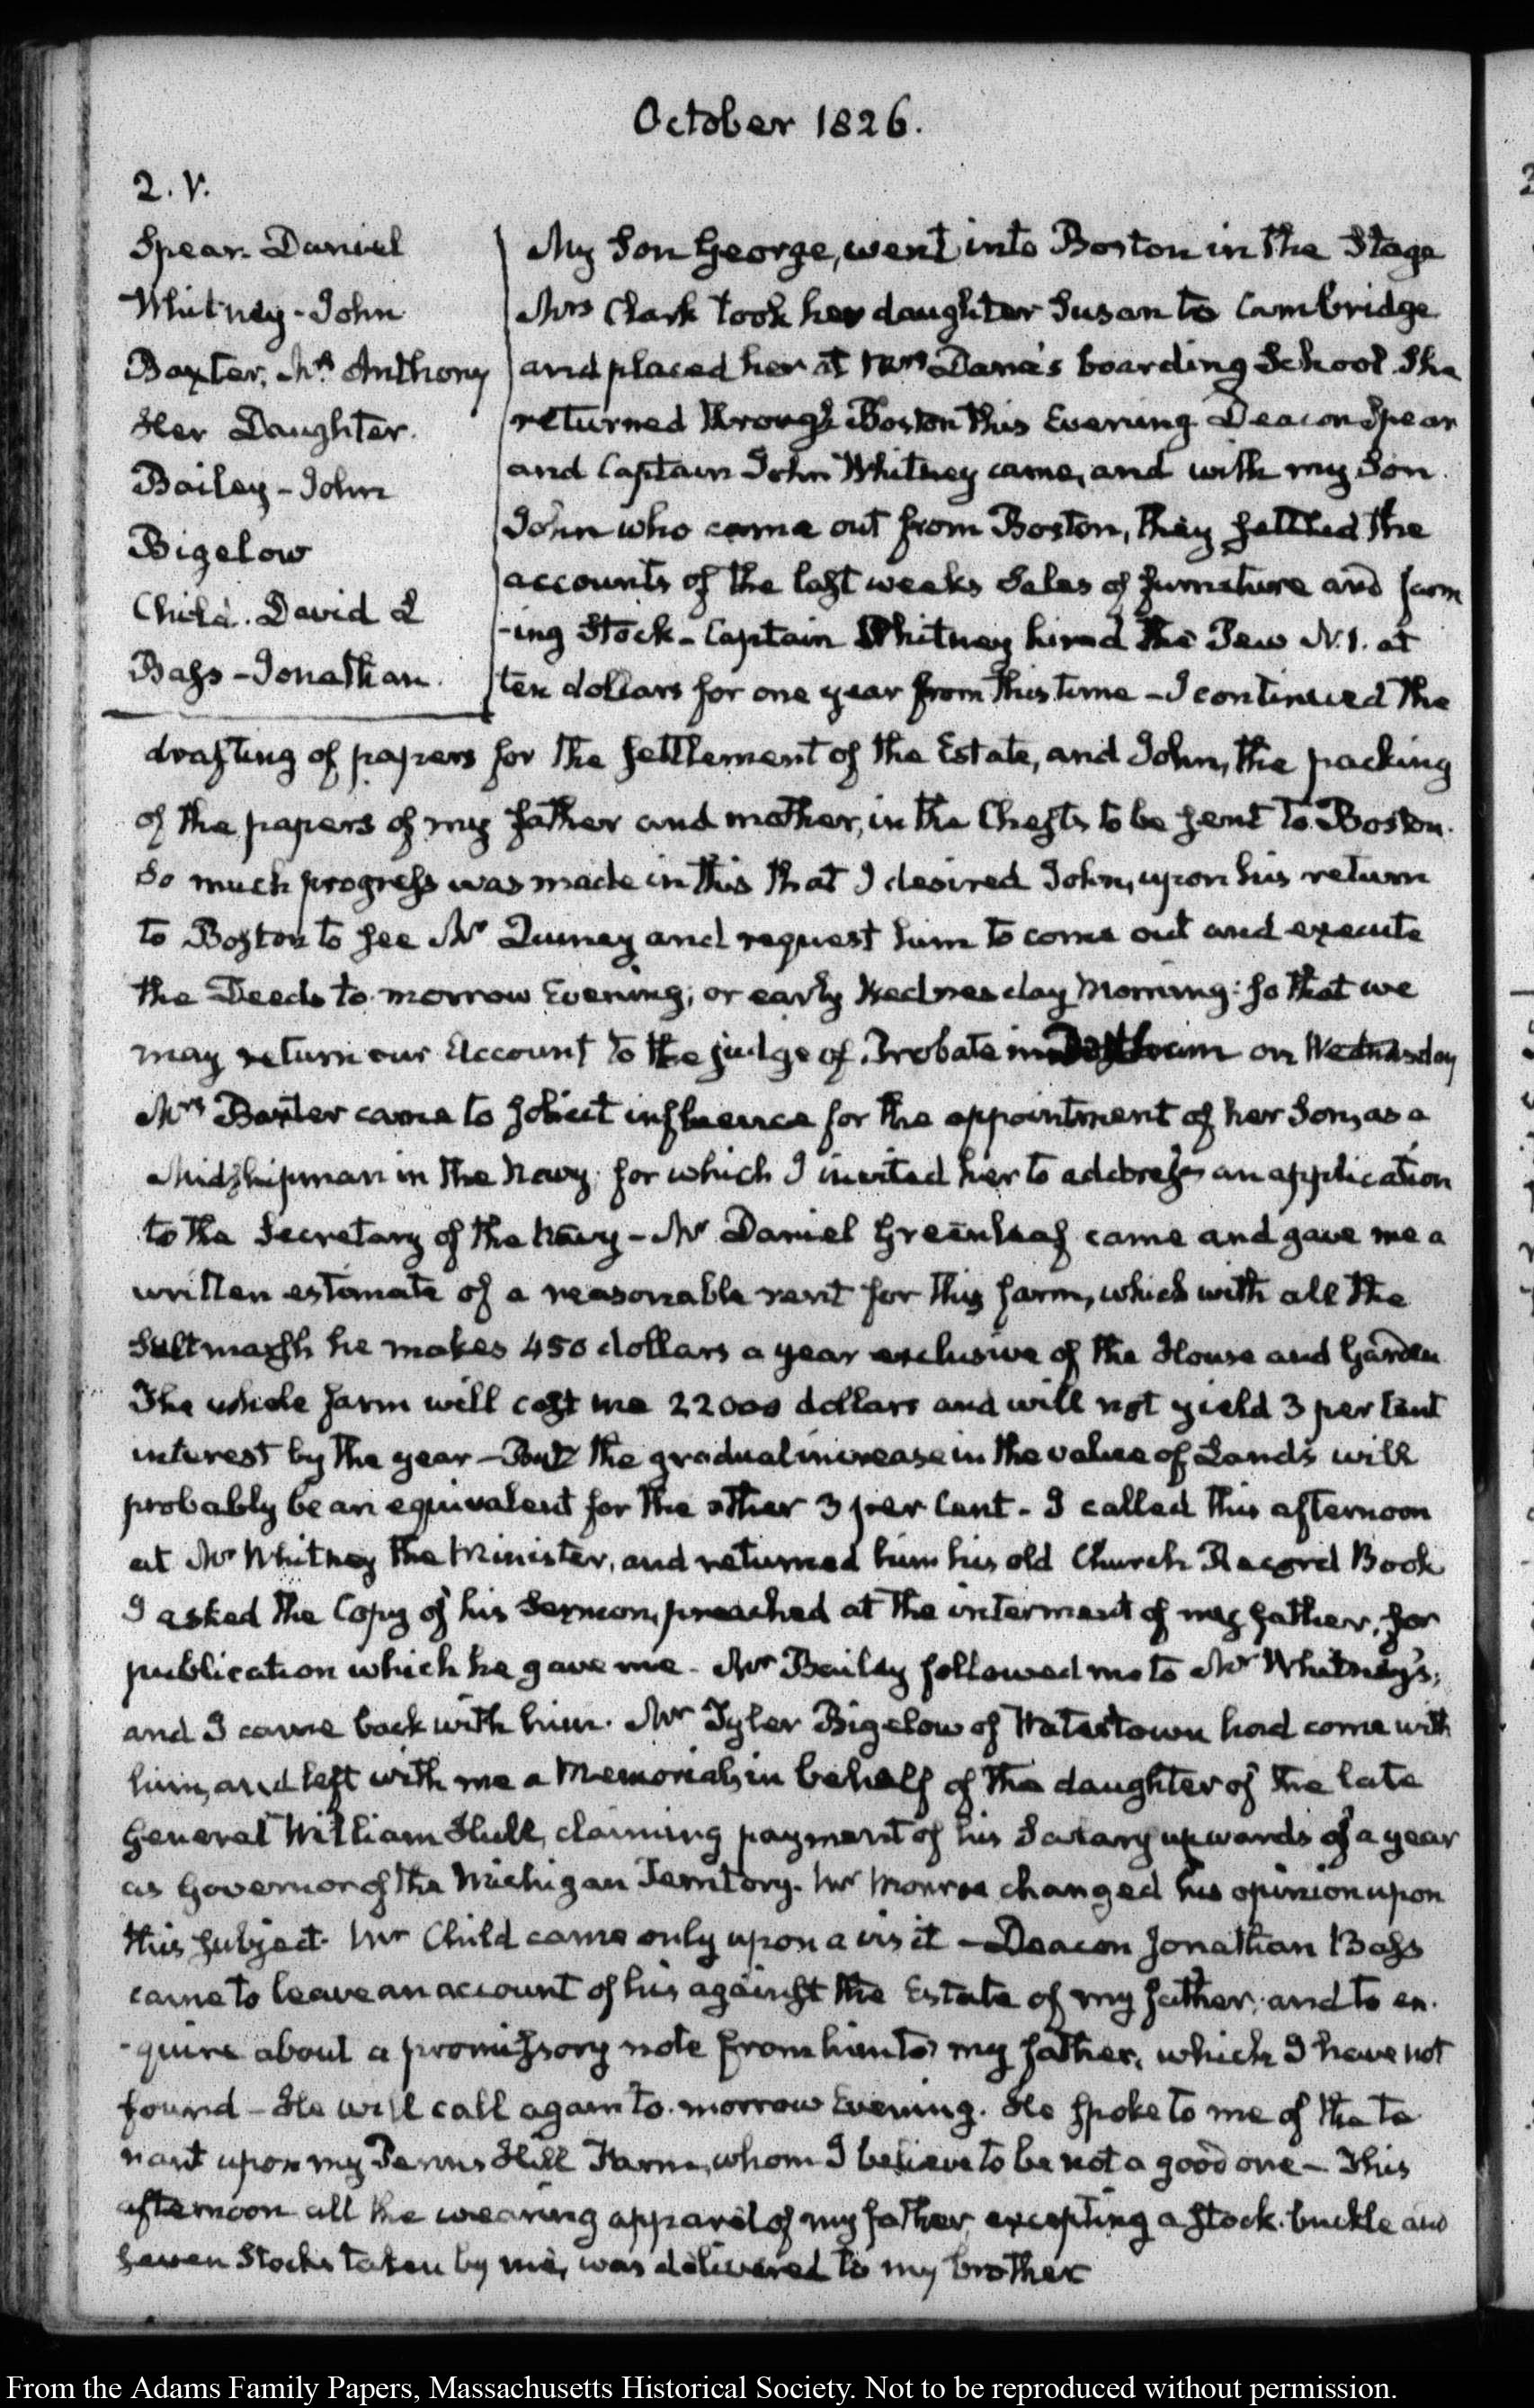 October 1826.
2. V.
Spear. Daniel
Whitney - John
Baxter, Mrs Anthony
Her Daughter.
Bailey - John
Bigelow
Child. David L
Bass - Jonathan.
My Son George, went into Boston in the Stage
Mrs Clark took her daughter Susan to Cambridge
and placed her at Mrs Dana's boarding School. She
returned through Boston this Evening Deacon Spear
and Captain John Whitney came, and with my Son
John who came out from Boston, they settled the
accounts of the last weeks Sales of furniture and farm
-ing Stock - Captain Whitney hired the Pew N. 1. at
ten dollars for one year from this time - I continued the
drafting of papers for the settlement of the Estate, and John, the packing
of the papers of my father and mother, in the Chests to be sent to Boston.
So much progress was made in this that I desired John, upon his return
to Boston to see Mr Quincy and request him to come out and execute
the Deeds to-morrow Evening; or early Wednesday Morning: so that we
may return our Account to the judge of Probate in on Wednesday
Mrs Baxter came to solicit influence for the appointment of her Son, as a
Midshipman in the Navy. for which I invited her to address an application
to the Secretary of the Navy - Mr Daniel Greenleaf came and gave me a
written estimate of a reasonable rent for this farm, which with all the
Saltmarsh he makes 450 dollars a year exclusive of the House and Garden
The whole farm will cost me 22000 dollars and will not yield 3 per Cent
interest by the year - But the gradual increase in the value of Lands will
probably be an equivalent for the other 3 per Cent. - I called this afternoon
at Mr Whitney the Minister, and returned him his old Church Record Book
I asked the Copy of his Sermon, preached at the interment of my father, for
publication which he gave me - Mr Bailey followed me to Mr Whitney's;
and I came back with him. Mr Tyler Bigelow of Watertown had come with
him, and left with me a Memorial, in behalf of the daughter of the late
General William Hull, claiming payment of his Salary upwards of a year
as Governor of the Michigan Territory. Mr Monroe changed his opinion upon
this subject. Mr Child came only upon a visit - Deacon Jonathan Bass
came to leave an account of his against the Estate of my father; and to en-
-quire about a promissory note from him to my father, which I have not
found - He will call again to-morrow Evening. He spoke to me of the te
nant upon my Penns Hill Farm, whom I believe to be not a good one - This
afternoon all the wearing apparel of my father excepting a stock-buckle and
seven Stocks taken by me, was delivered to my brother
From the Adams Family Papers, Massachusetts Historical Society. Not to be reproduced without permission.